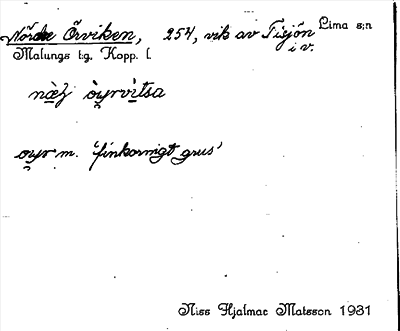 Nördre Örviken, 254, vik av Tisjön Lima s:n
i v.
Malungs t:g, Kopp. l.
òyrvìtsa
oyr m. 'finkornigt grus'
Niss Hjalmar Matsson 1931